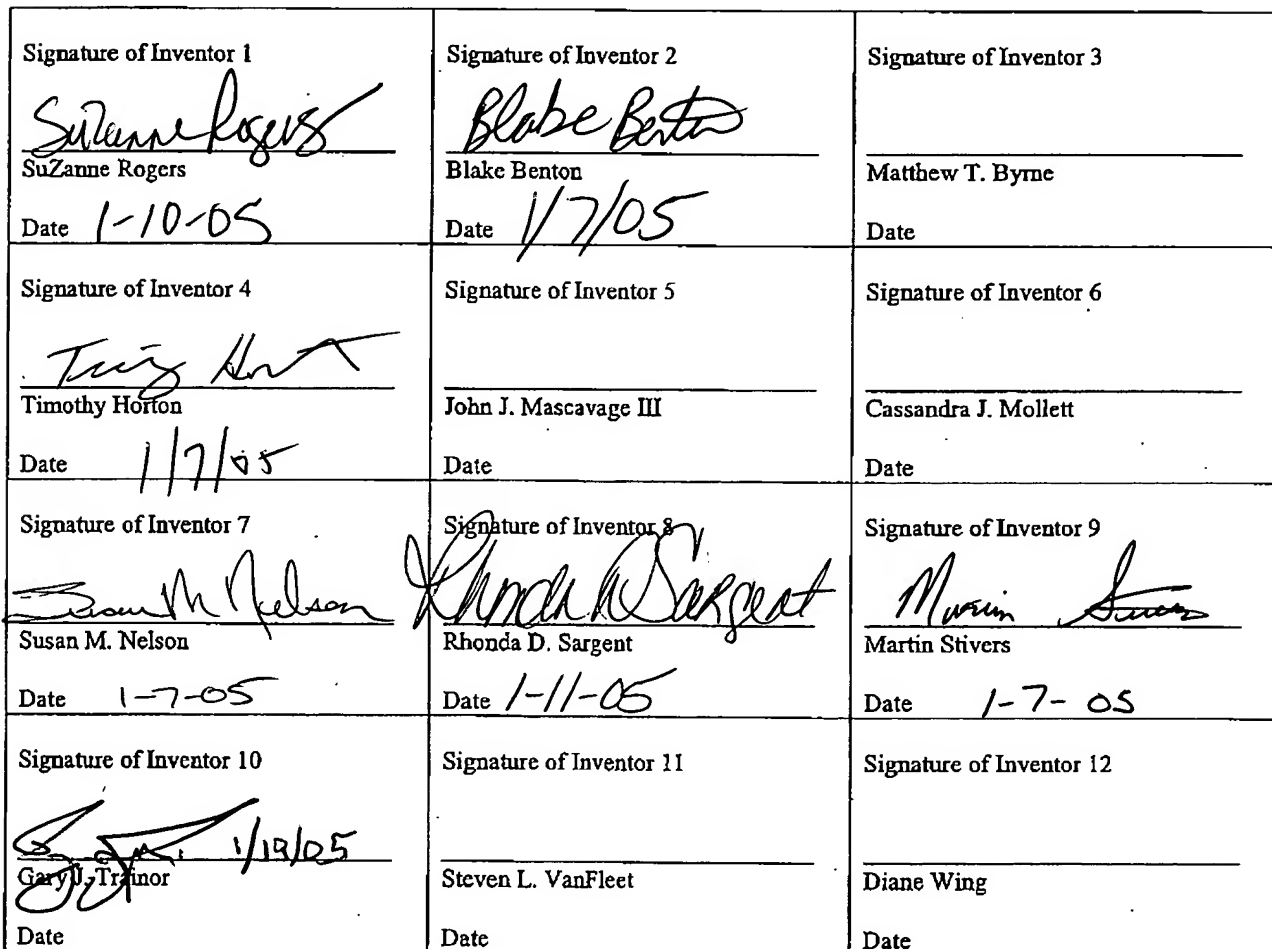 Signature of Inventor 1
SuZanne Rogers
SuZanne Rogers
Date 1-10-05
Signature of Inventor 2
Blake Benton
Blake Benton
Date 1/7/05
Signature of Inventor 3
Matthew T. Byrne
Date
Signature of Inventor 4
Timothy Horton
Date 1/7/05
Signature of Inventor 5
John J. Mascavage III
Date
Signature of Inventor 6
Cassandra J. Mollett
Date
Signature of Inventor 7
Susan M Nelson
Susan M. Nelson
Date 1-7-05
Signature of Inventor 8
Rhonda D Sargent
Rhonda D. Sargent
Date 1-11-05
Signature of Inventor 9
Martin Stivers
Date 1-7-05
Signature of Inventor 10
1/19/05
Gary J. Trainor
Date
Signature of Inventor 11
Steven L. VanFleet
Date
Signature of Inventor 12
Diane Wing
Date